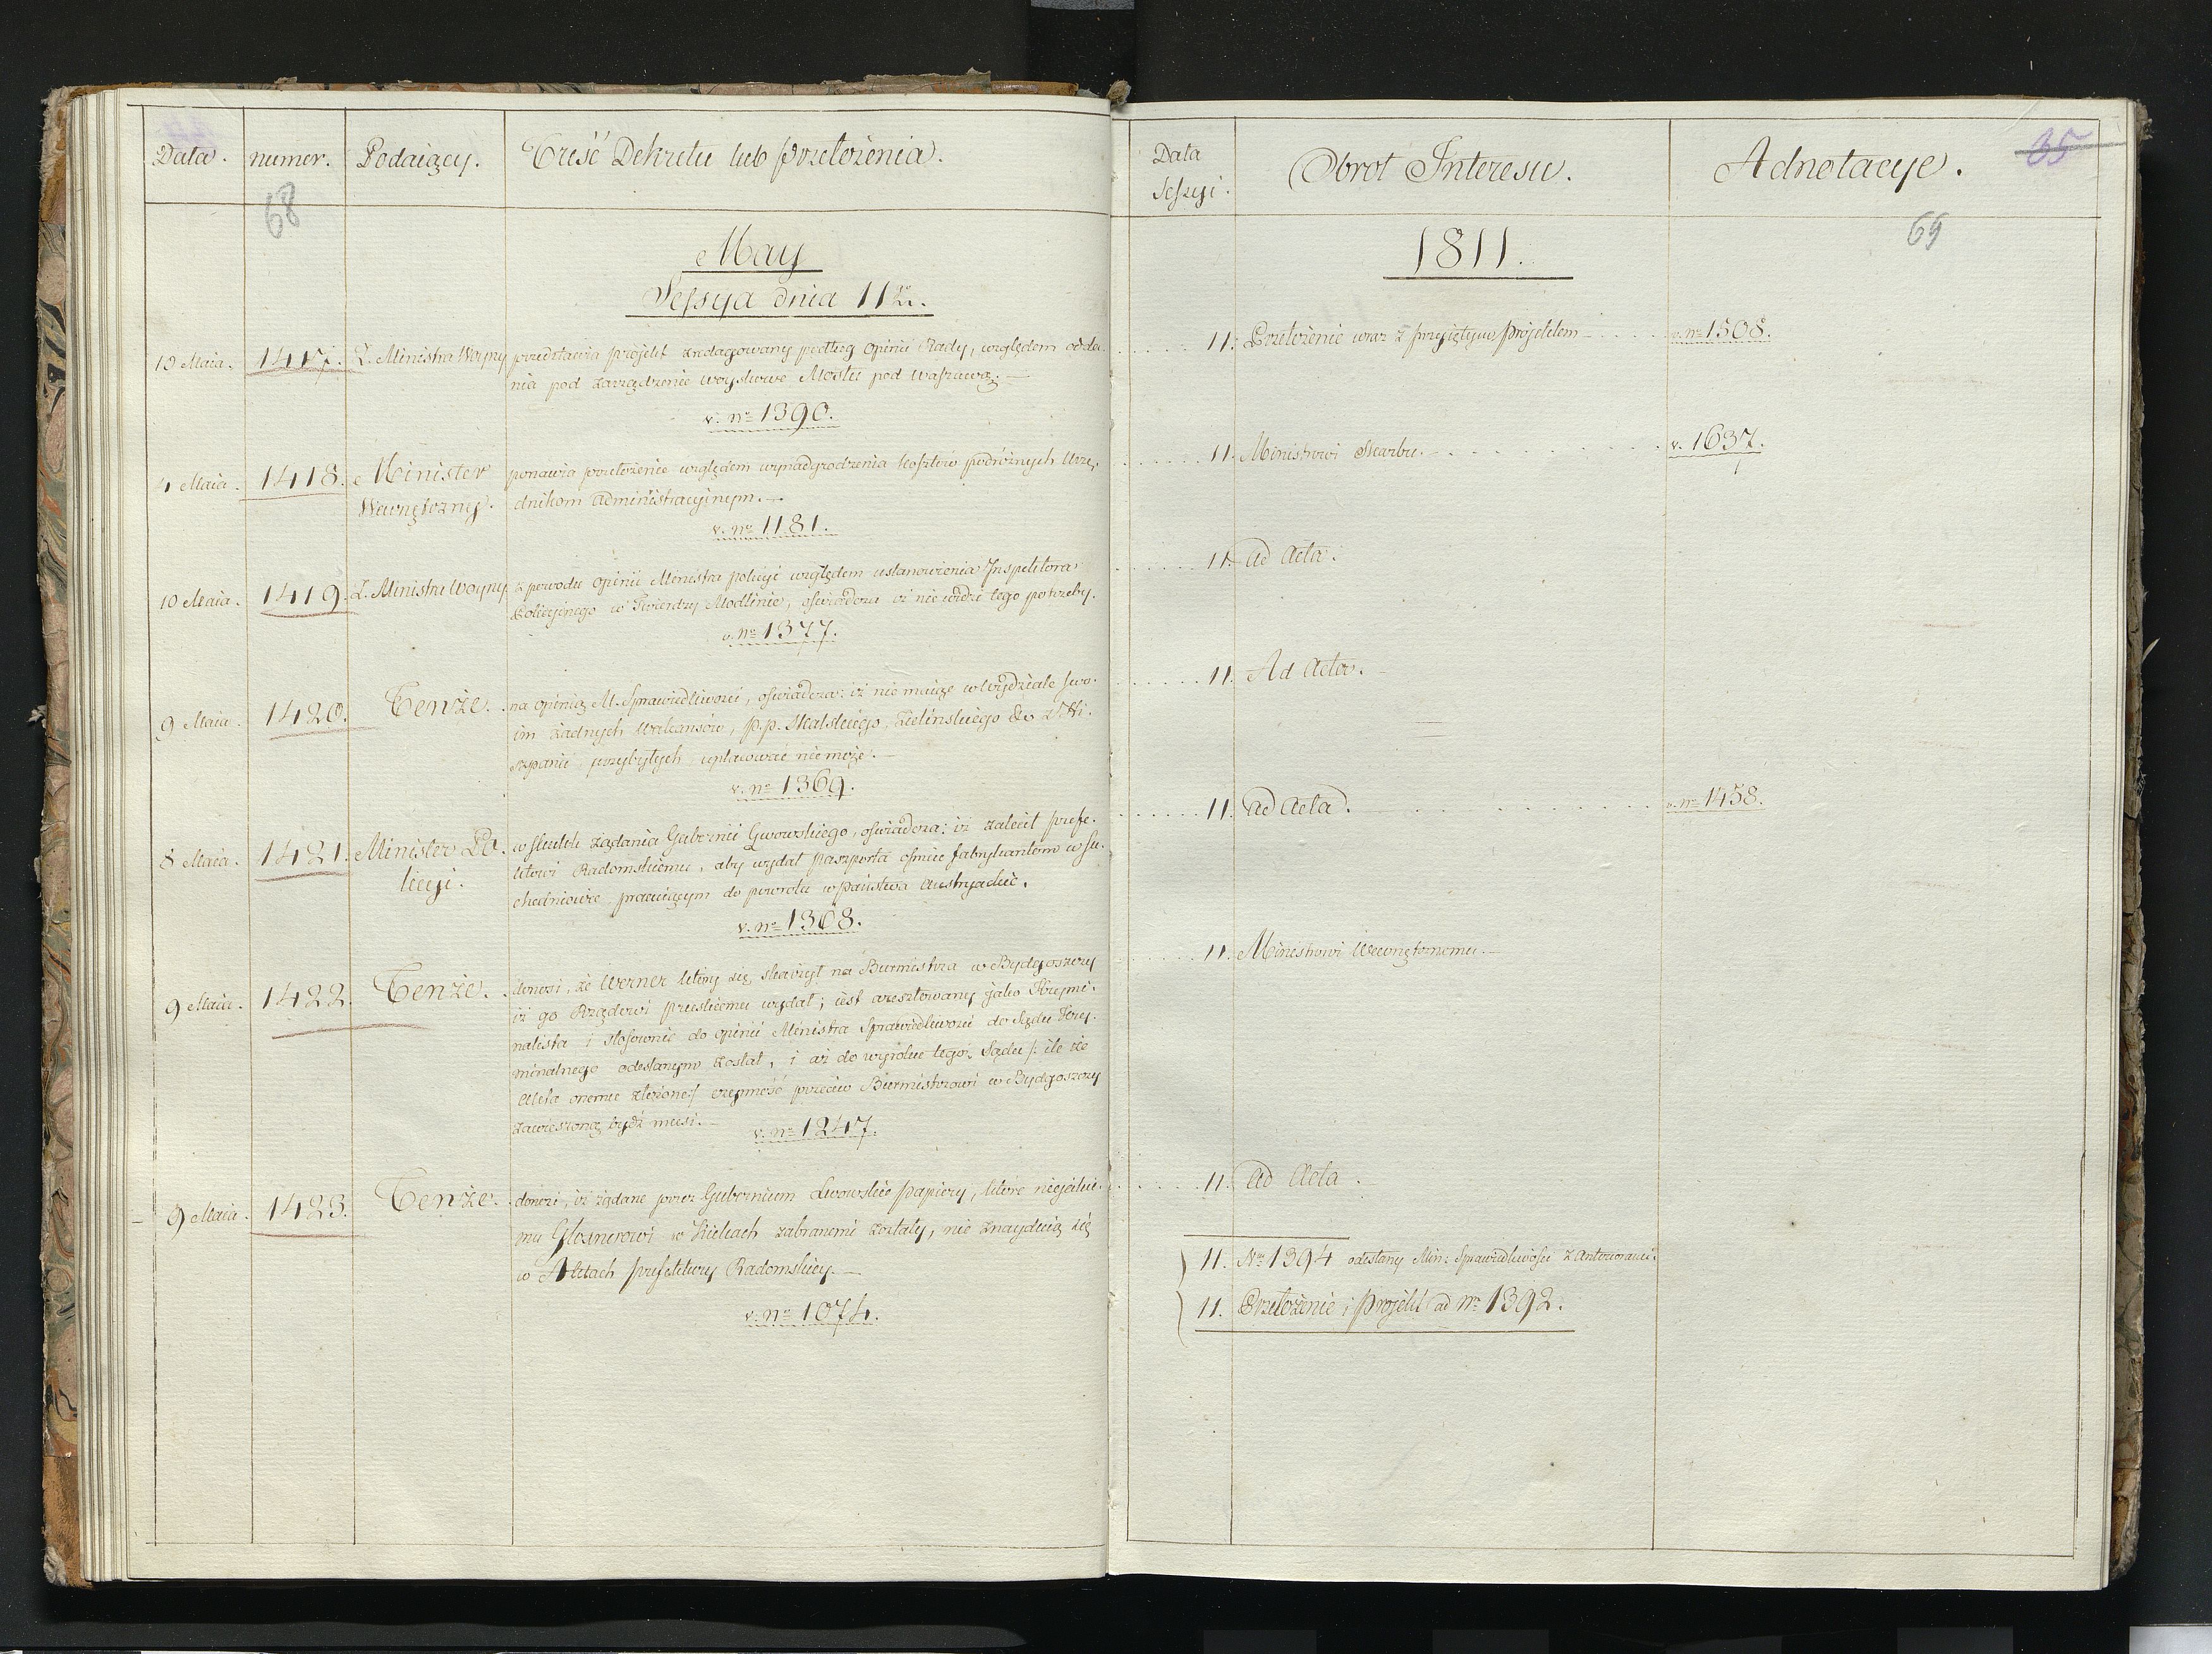 Data. numer. Podaiący. Treść Dekretu lub przełożenia.
68
May
Sessya dnia 11go.
10 Maia. 1417. Z. Ministra Woyny przedstawia projekt zredagowany podług opinii Rady, względem odda-
nia pod zarządzenie woyskowe Mostu pod Warszawą.—
v. nro 1390.
4 Maia. 1418. Minister ponawia przełożenie względem wynadgrodzenia kosztów podróżnych Urzę-
Wewnętrzny. dnikom administracyinym.—
v. nro 1181.
10 Maia. 1419. Z. Ministra Woyny z powodu opinii Ministra policyi względem ustanowienia Inspektora
Policyinego w Twierdzy Modlinie, oświadcza iż nie widzi tego potrzeby.
v. nro 1377.
9 Maia. 1420. Tenże. na opinią M. Sprawiedliwości, oświadcza: iż nie maiąc w wydziale swo-
im żadnych Wakansów, p.p. Skalskiego, Zielińskiego &c z Hi-
szpanii przybyłych uplacować nie może.—
v. nro 1369.
8 Maia. 1421. Minister Po- w skutek żądania Gubernii Lwowskiego, oświadcza: iż zalecił prefe-
licyi. ktowi Radomskiemu, aby wydał paszporta ośmiu fabrykantom w Su-
chedniowie pracuiącym do powrotu w państwa Austryackie.
v. nro 1308.
9 Maia. 1422. Tenże. donosi, że Werner który się skarżył na Burmistrza w Bydgoszczy
iż go Rządowi pruskiemu wydał; iest aresztowany jako Krymi-
nalista i stosownie do opinii Ministra Sprawiedliwości do Sądu Kry-
minalnego odesłanym został, i aż do wyroku tegoż Sądu /: ile że
Akta onemu złożone:/ czynność przeciw Burmistrzowi w Bydgoszczy
zawieszoną bydź musi.—
v. nro 1247.
9 Maia. 1423. Tenże. donosi, iż żądane przez Gubernium Lwowskie papiery, które niejakie-
mu Gloznerowi w Kielcach zabranemi zostały, nie znayduią się
w Aktach prefektury Radomskiey.—
v. nro 1074.
Data
Sessyi. Obrot Interesu. Adnotacye. 35
69
1811.
11. Przełożenie wraz z przyiętym projektem v. nro 1508.
11. Ministrowi Skarbu. v. 1637.
11. ad Acta.
11. Ad Acta.
11. ad Acta. v. nro 1458.
11. Ministrowi Wewnętrznemu.—
11. ad Acta.
11. Nro 1394 odesłany Min: Sprawiedliwości z Anterioraмi.
11. Przełożenie i projekt ad nro 1392.